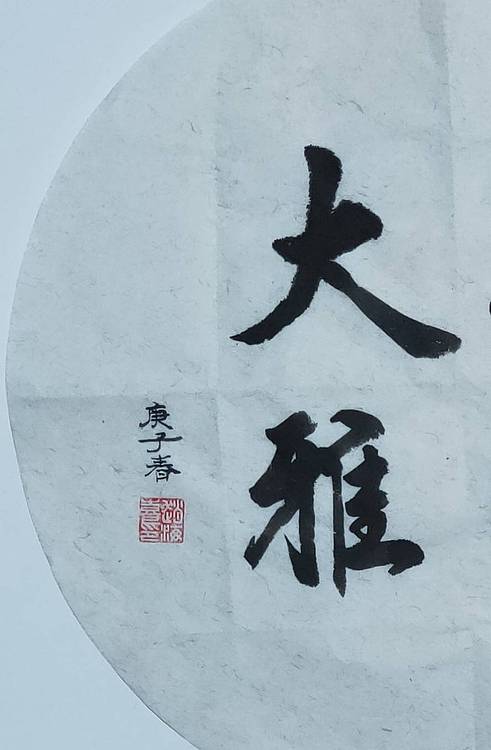 大雅
庚子春